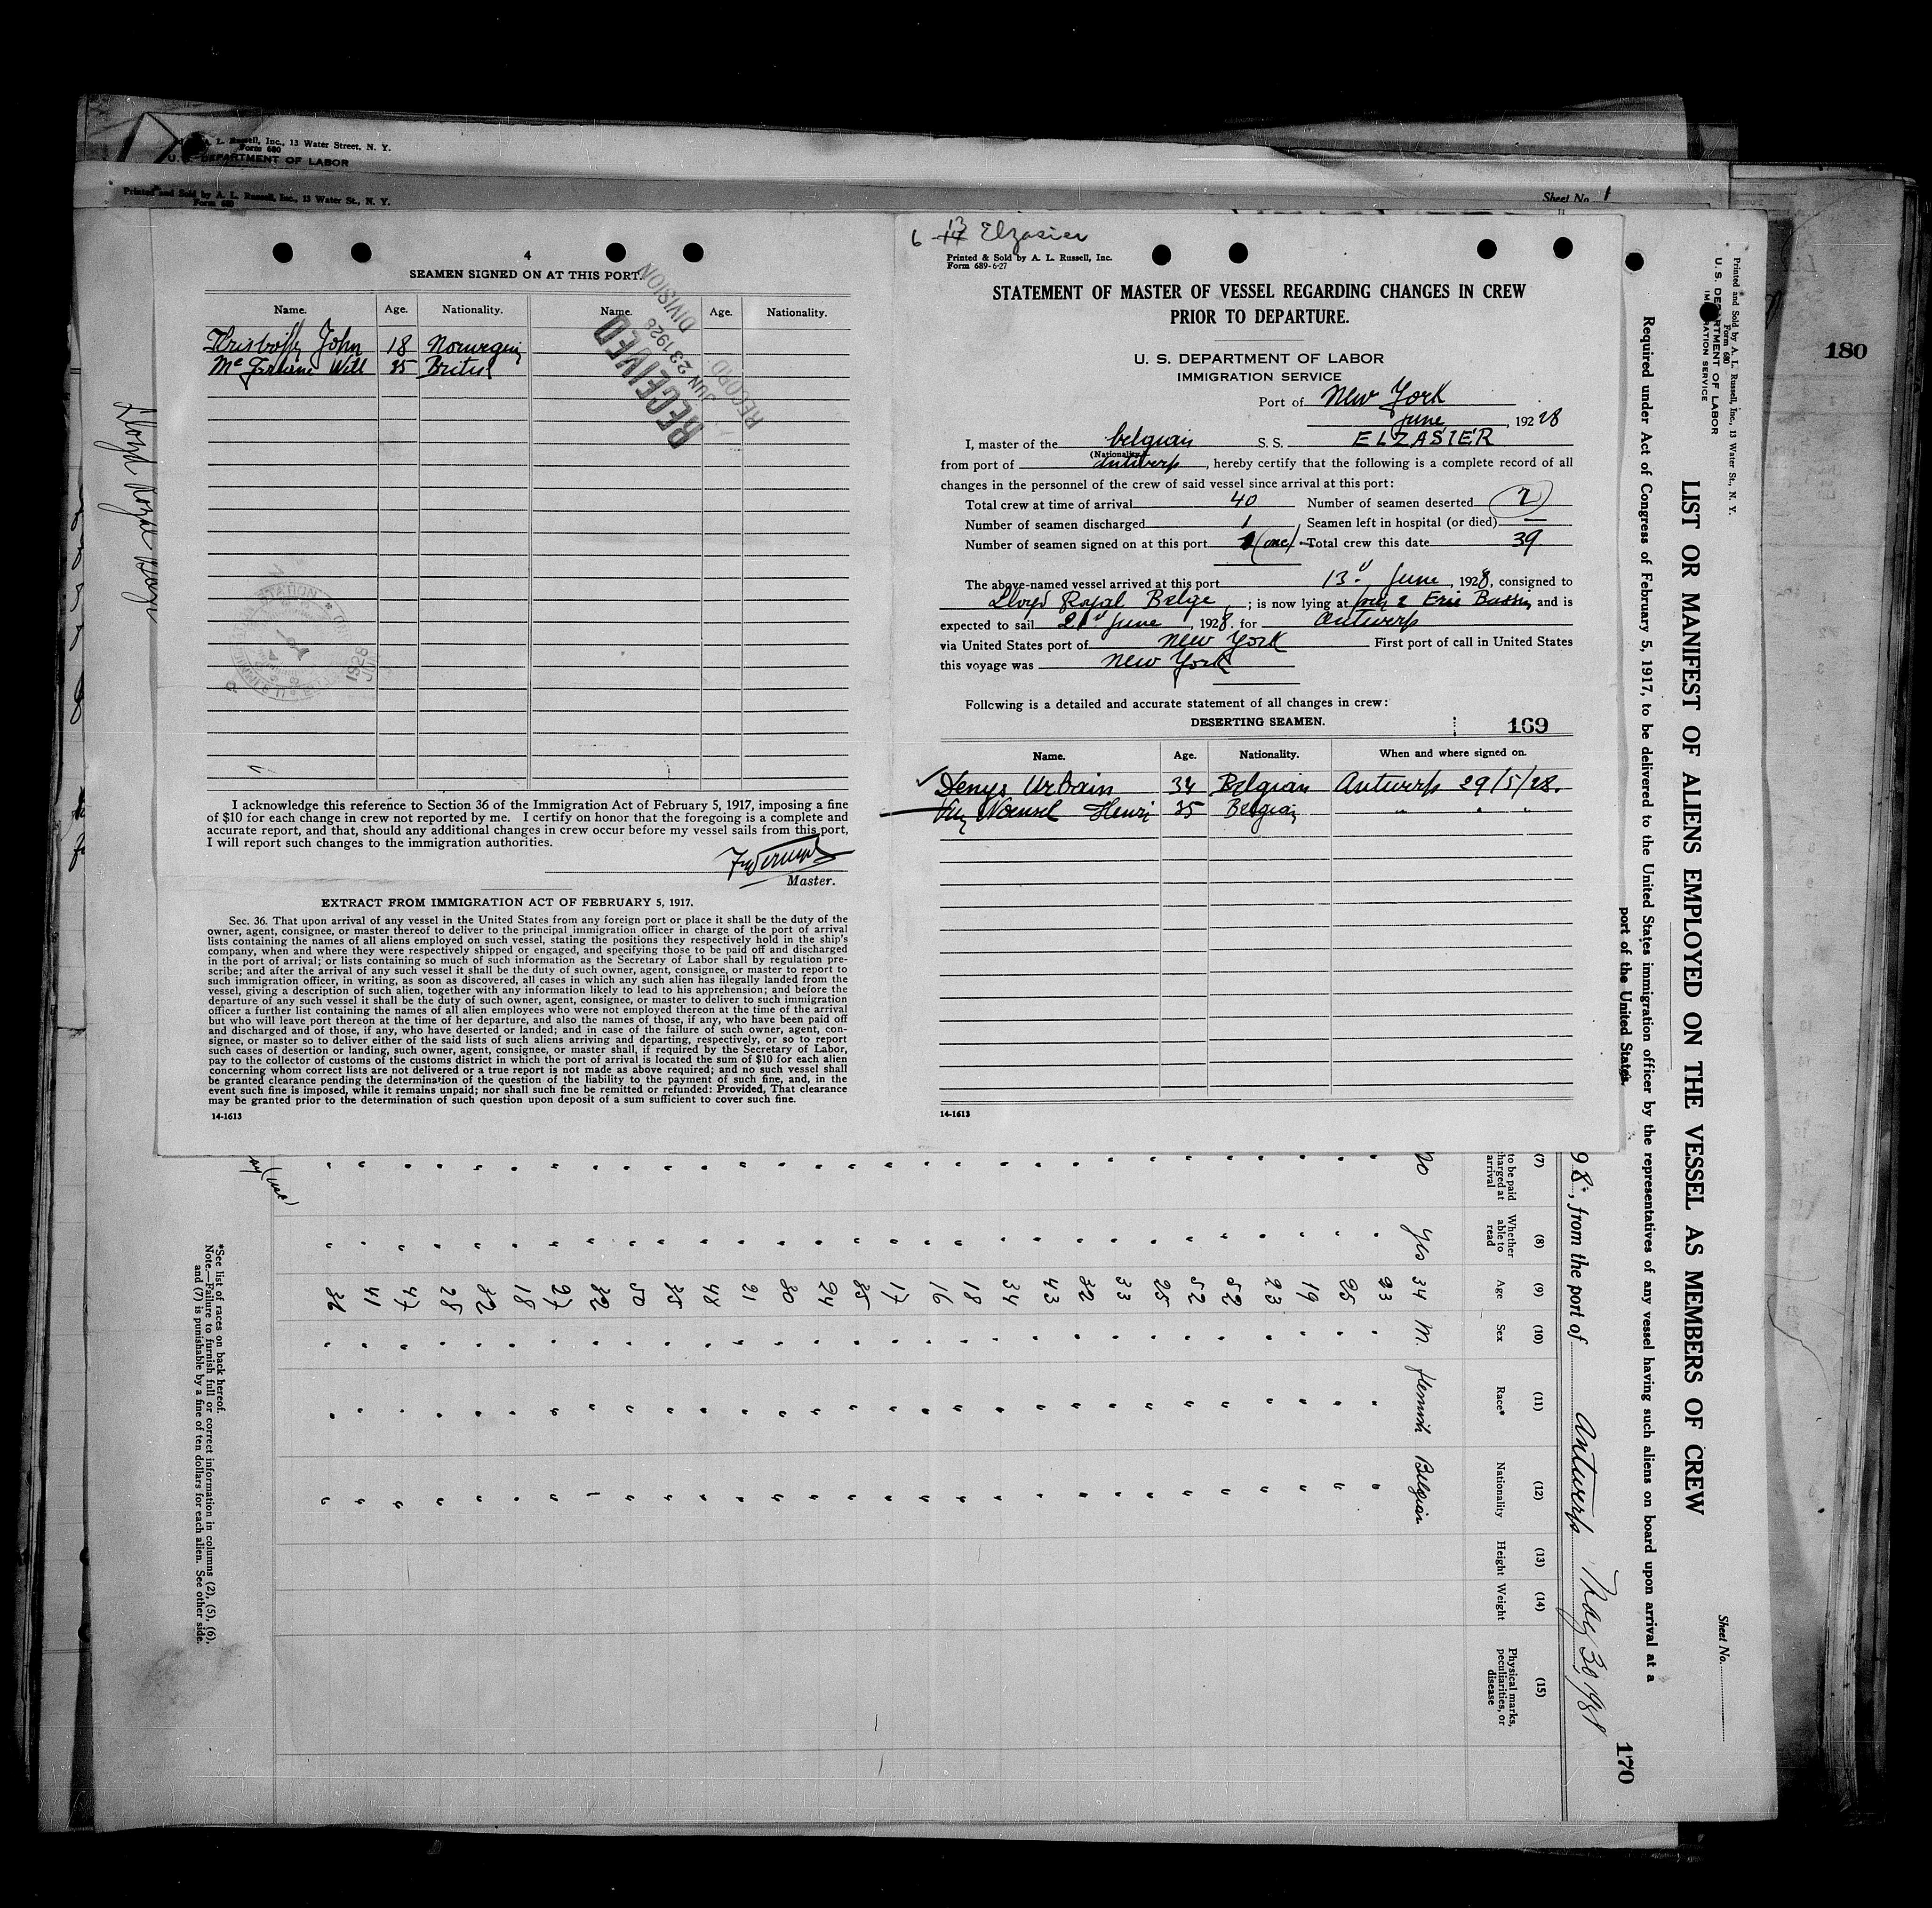 A. L. Russell, Inc., 13 Water Street, N. Y.
Form 680
U. S. DEPARTMENT OF LABOR
Printed and Sold by A. L. Russell, Inc., 13 Water St., N. Y.
Form 680
Sheet No. 1
180
4
SEAMEN SIGNED ON AT THIS PORT.
Name. Age. Nationality. Name. Age. Nationality.
John 18
Will 25
RECEIVED
JUN 23 1928
RECORD DIVISION
Lloyd Royal Belge
I acknowledge this reference to Section 36 of the Immigration Act of February 5, 1917, imposing a fine
of $10 for each change in crew not reported by me. I certify on honor that the foregoing is a complete and
accurate report, and that, should any additional changes in crew occur before my vessel sails from this port,
I will report such changes to the immigration authorities.
Master.
EXTRACT FROM IMMIGRATION ACT OF FEBRUARY 5, 1917.
Sec. 36. That upon arrival of any vessel in the United States from any foreign port or place it shall be the duty of the
owner, agent, consignee, or master thereof to deliver to the principal immigration officer in charge of the port of arrival
lists containing the names of all aliens employed on such vessel, stating the positions they respectively hold in the ship's
company, when and where they were respectively shipped or engaged, and specifying those to be paid off and discharged
in the port of arrival; or lists containing so much of such information as the Secretary of Labor shall by regulation pre-
scribe; and after the arrival of any such vessel it shall be the duty of such owner, agent, consignee, or master to report to
such immigration officer, in writing, as soon as discovered, all cases in which any such alien has illegally landed from the
vessel, giving a description of such alien, together with any information likely to lead to his apprehension; and before the
departure of any such vessel it shall be the duty of such owner, agent, consignee, or master to deliver to such immigration
officer a further list containing the names of all alien employees who were not employed thereon at the time of the arrival
but who will leave port thereon at the time of her departure, and also the names of those, if any, who have been paid off
and discharged and of those, if any, who have deserted or landed; and in case of the failure of such owner, agent, con-
signee, or master so to deliver either of the said lists of such aliens arriving and departing, respectively, or so to report
such cases of desertion or landing, such owner, agent, consignee, or master shall, if required by the Secretary of Labor,
pay to the collector of customs of the customs district in which the port of arrival is located the sum of $10 for each alien
concerning whom correct lists are not delivered or a true report is not made as above required; and no such vessel shall
be granted clearance pending the determination of the question of the liability to the payment of such fine, and, in the
event such fine is imposed, while it remains unpaid; nor shall such fine be remitted or refunded: Provided, That clearance
may be granted prior to the determination of such question upon deposit of a sum sufficient to cover such fine.
14-1613
6 13 Elzasier
Printed & Sold by A. L. Russell, Inc.
Form 689-6-27
STATEMENT OF MASTER OF VESSEL REGARDING CHANGES IN CREW
PRIOR TO DEPARTURE.
U. S. DEPARTMENT OF LABOR
IMMIGRATION SERVICE
Port of New York
June, 192 28
I, master of the belgian S. S. ELZASIER
(Nationality)
from port of Antwerp, hereby certify that the following is a complete record of all
changes in the personnel of the crew of said vessel since arrival at this port:
Total crew at time of arrival 40 Number of seamen deserted 2
Number of seamen discharged 1 Seamen left in hospital (or died) —
Number of seamen signed on at this port 1 (one) Total crew this date 39
The above-named vessel arrived at this port 13 June, 1928, consigned to
Lloyd Royal Belge; is now lying at 2 Erie Bassin, and is
expected to sail 21 June, 1928. for Antwerp
via United States port of New York First port of call in United States
this voyage was New York
Following is a detailed and accurate statement of all changes in crew:
DESERTING SEAMEN.
169
Name. Age. Nationality. When and where signed on.
Denys Urbain 34 Belgian Antwerp 29/5/28.
Henri 25 Belgian " " "
14-1613
Printed and Sold by A. L. Russell, Inc., 13 Water St., N. Y.
Form 680
U. S. DEPARTMENT OF LABOR
IMMIGRATION SERVICE
Sheet No.
LIST OR MANIFEST OF ALIENS EMPLOYED ON THE VESSEL AS MEMBERS OF CREW
Required under Act of Congress of February 5, 1917, to be delivered to the United States immigration officer by the representatives of any vessel having such aliens on board upon arrival at a
port of the United States.
170
, from the port of Antwerp May 30 1928
(7) (8) (9) (10) (11) (12) (13) (14) (15)
to be paid
charged at
arrival
Whether
able to
read
Age
Sex
Race*
Nationality
Height
Weight
Physical marks,
peculiarities, or
disease
no yes 34 M. flemish Belgian
23
25
19
23
52
52
25
33
32
43
34
18
16
17
35
24
30
21
48
35
50
32
27
18
32
28
47
41
36
*See list of races on back hereof.
Note.—Failure to furnish full or correct information in columns (2), (5), (6),
and (7) is punishable by a fine of ten dollars for each alien. See other side.